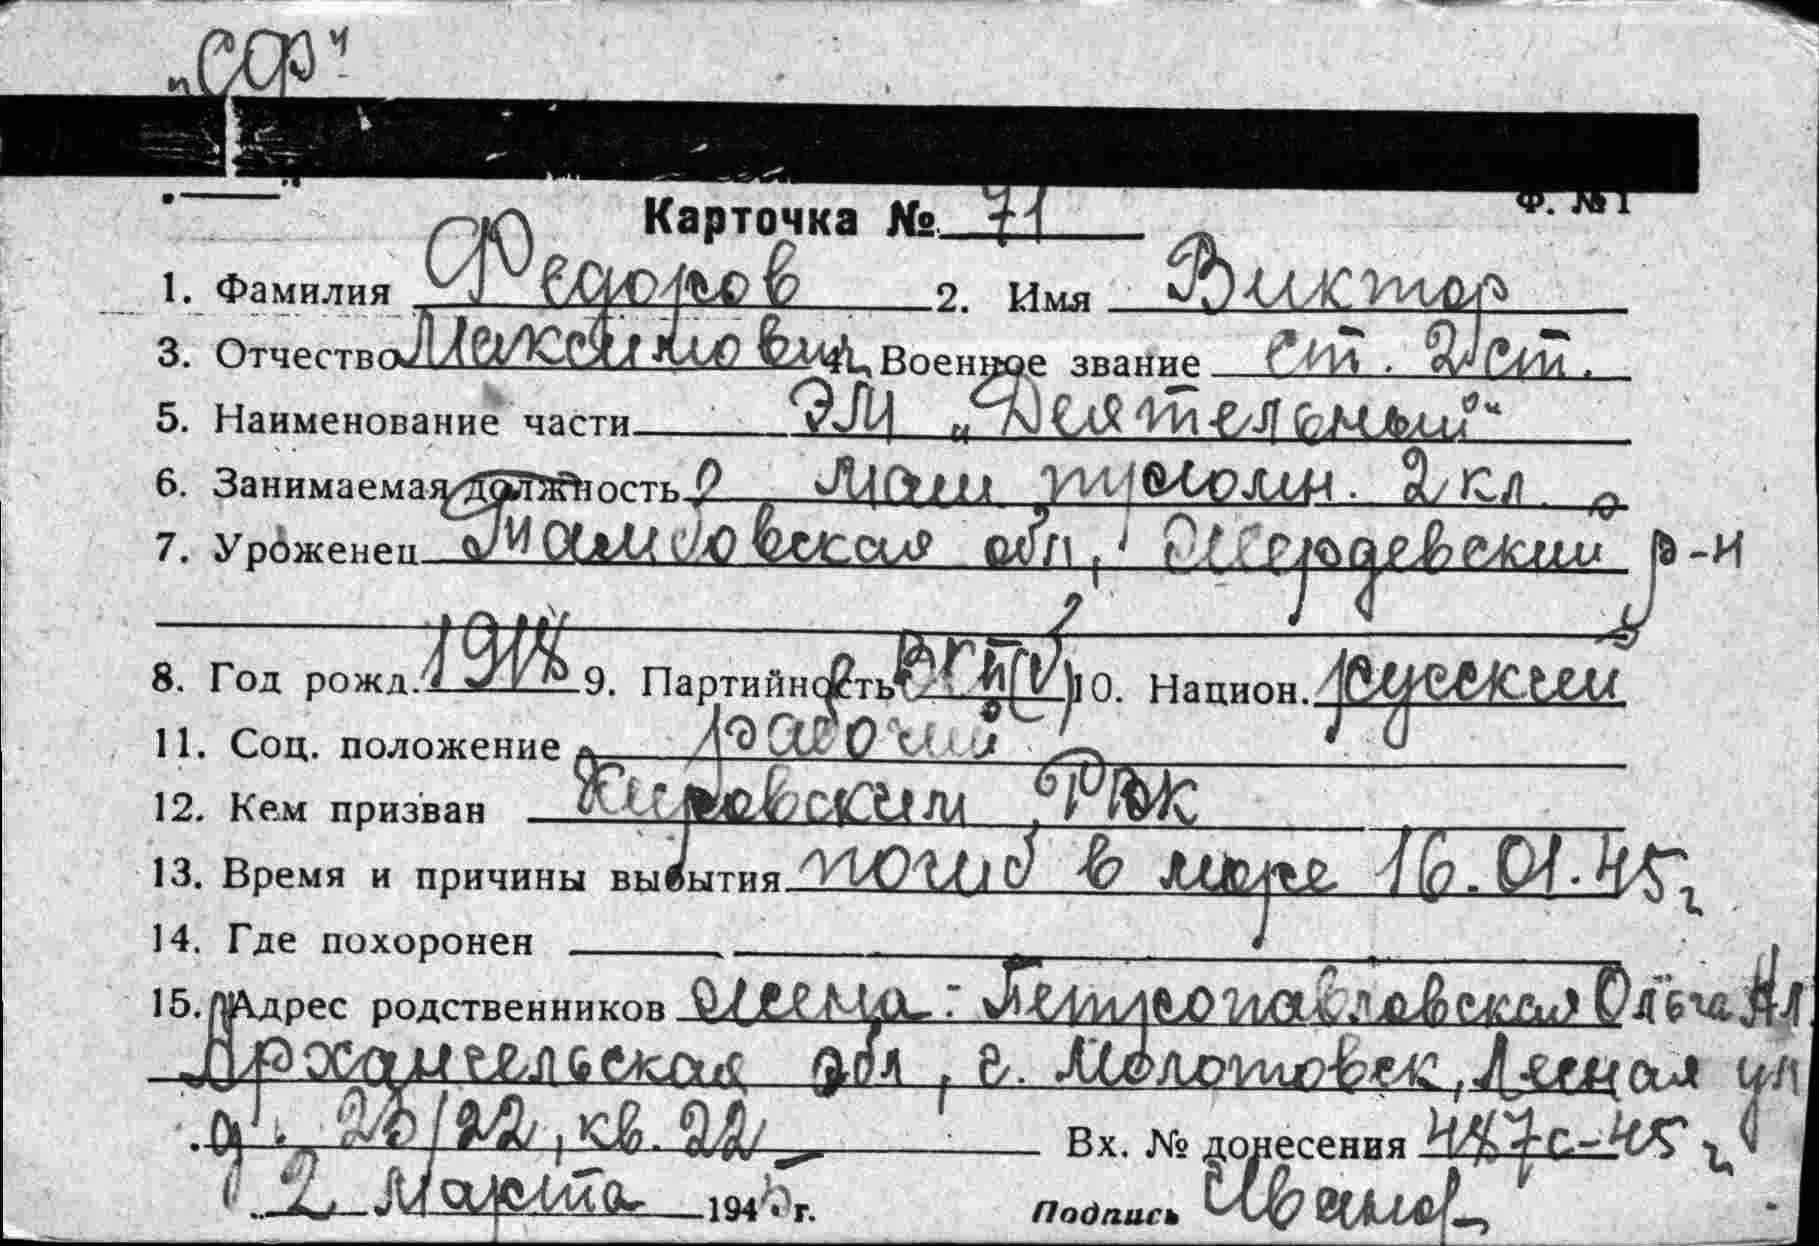 „СФ"
Ф. № 1
Карточка № 71
1. Фамилия Федоров 2. Имя Виктор
3. Отчество Максимович 4. Военное звание ст. 2 ст.
5. Наименование части ЭМ „Деятельный"
6. Занимаемая должность маш турбин. 2 кл.
7. Уроженец Тамбовская обл, Жердевский р-н
8. Год рожд. 1918 9. Партийность ВКП(б) 10. Национ. русский
11. Соц. положение рабочий
12. Кем призван Кировским РВК
13. Время и причины выбытия погиб в море 16.01.45 г
14. Где похоронен
15. Адрес родственников жена: Петропавловская Ольга Ал
Архангельская обл, г. Молотовск, Лесная ул
д. 20/22, кв. 22 Вх. № донесения 487с-45 г
2 марта 1945 г. Подпись Иванов